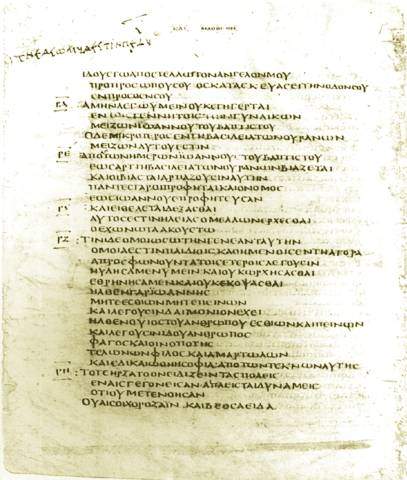 ΚΑΤ ΜΑΘΘΑΙΟΝ
ΙΔΟΥΕΓΩΑΠΟϹΤΕΛΛΩΤΟΝΑΝΓΕΛΟΝΜΟΥ
ΠΡΟΠΡΟϹΩΠΟΥϹΟΥ ΟϹΚΑΤΑϹΚΕΥΑϹΕΙΤΗΝΟΔΟΝϹΟΥ
ΕΝΠΡΟϹΘΕΝϹΟΥ
ΡΔ ΑΜΗΝΛΕΓΩΥΜΕΙΝΟΥΚΕΓΗΓΕΡΤΑΙ
ΕΝΤΟΙϹΓΕΝΝΗΤΟΙϹΤΩΝΓΥΝΑΙΚΩΝ
ΜΕΙΖΩΝΙΩΑΝΝΟΥΤΟΥΒΑΠΤΙϹΤΟΥ
ΟΔΕΜΙΚΡΟΤΕΡΟϹΕΝΤΗΒΑϹΙΛΕΙΑΤΩΝΟΥΡΑΝΩΝ
ΜΕΙΖΩΝΑΥΤΟΥΕϹΤΙΝ
ΡΕ ΑΠΟΤΩΝΗΜΕΡΩΝΙΩΑΝΝΟΥ ΤΟΥΒΑΠΤΙϹΤΟΥ
ΕΩϹΑΡΤΙΗΒΑϹΙΛΕΙΑΤΩΝΟΥΡΑΝΩΝΒΙΑΖΕΤΑΙ
ΚΑΙΟΙΒΙΑϹΤΑΙΑΡΠΑΖΟΥϹΙΝΑΥΤΗΝ
ΠΑΝΤΕϹΓΑΡΟΙΠΡΟΦΗΤΑΙΚΑΙΟΝΟΜΟϹ
ΕΩϹΙΩΑΝΟΥΕΠΡΟΦΗΤΕΥϹΑΝ
ΡϚ ΚΑΙΕΙΘΕΛΕΤΑΙΔΕΞΑϹΘΑΙ
ΑΥΤΟϹΕϹΤΙΝΗΛΕΙΑϹΟΜΕΛΛΩΝΕΡΧΕϹΘΑΙ
ΟΕΧΩΝΩΤΑΑΚΟΥΕΤΩ
ΡΖ ΤΙΝΙΔΕΟΜΟΙΩϹΩΤΗΝΓΕΝΕΑΝΤΑΥΤΗΝ
ΟΜΟΙΑΕϹΤΙΝΠΑΙΔΙΟΙϹΚΑΘΗΜΕΝΟΙϹΕΝΤΗΑΓΟΡΑ
ΑΠΡΟϹΦΩΝΟΥΝΤΑΤΟΙϹΕΤΕΡΟΙϹΛΕΓΟΥϹΕΙΝ
ΗΥΛΗϹΑΜΕΝΥΜΕΙΝΚΑΙΟΥΚΩΡΧΗϹΑϹΘΑΙ
ΕΘΡΗΝΗϹΑΜΕΝΚΑΙΟΥΚΕΚΟΨΑϹΘΑΙ
ΗΛΘΕΝΓΑΡΙΩΑΝΝΗϹ
ΜΗΤΕΕϹΘΩΝΜΗΤΕΠΕΙΝΩΝ
ΚΑΙΛΕΓΟΥϹΙΝΔΑΙΜΟΝΙΟΝΕΧΕΙ
ΗΛΘΕΝΟΥΙΟϹΤΟΥΑΝΘΡΩΠΟΥΕϹΘΩΝΚΑΙΠΕΙΝΩΝ
ΚΑΙΛΕΓΟΥϹΙΝΙΔΟΥΑΝΘΡΩΠΟϹ
ΦΑΓΟϹΚΑΙΟΙΝΟΠΟΤΗϹ
ΤΕΛΩΝΩΝΦΙΛΟϹΚΑΙΑΜΑΡΤΩΛΩΝ
ΚΑΙΕΔΙΚΑΙΩΘΗΗϹΟΦΙΑΑΠΟΤΩΝΤΕΚΝΩΝΑΥΤΗϹ
ΡΗ ΤΟΤΕΗΡΞΑΤΟΟΝΕΙΔΙΖΕΙΝΤΑϹΠΟΛΕΙϹ
ΕΝΑΙϹΓΕΓΟΝΕΙϹΑΝΑΙΠΛΕΙϹΤΑΙΔΥΝΑΜΕΙϹ
ΟΤΙΟΥΜΕΤΕΝΟΗϹΑΝ
ΟΥΑΙϹΟΙΧΟΡΟΖΑΪΝ ΚΑΙΒΕΘϹΑΕΙΔΑ